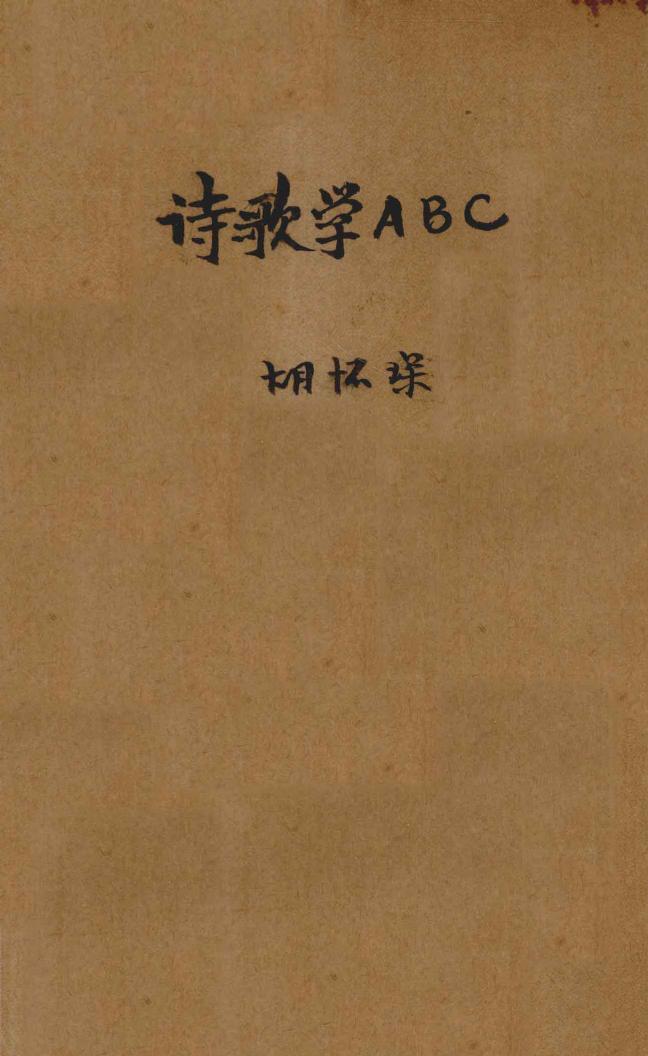 诗歌学ABC
胡怀琛